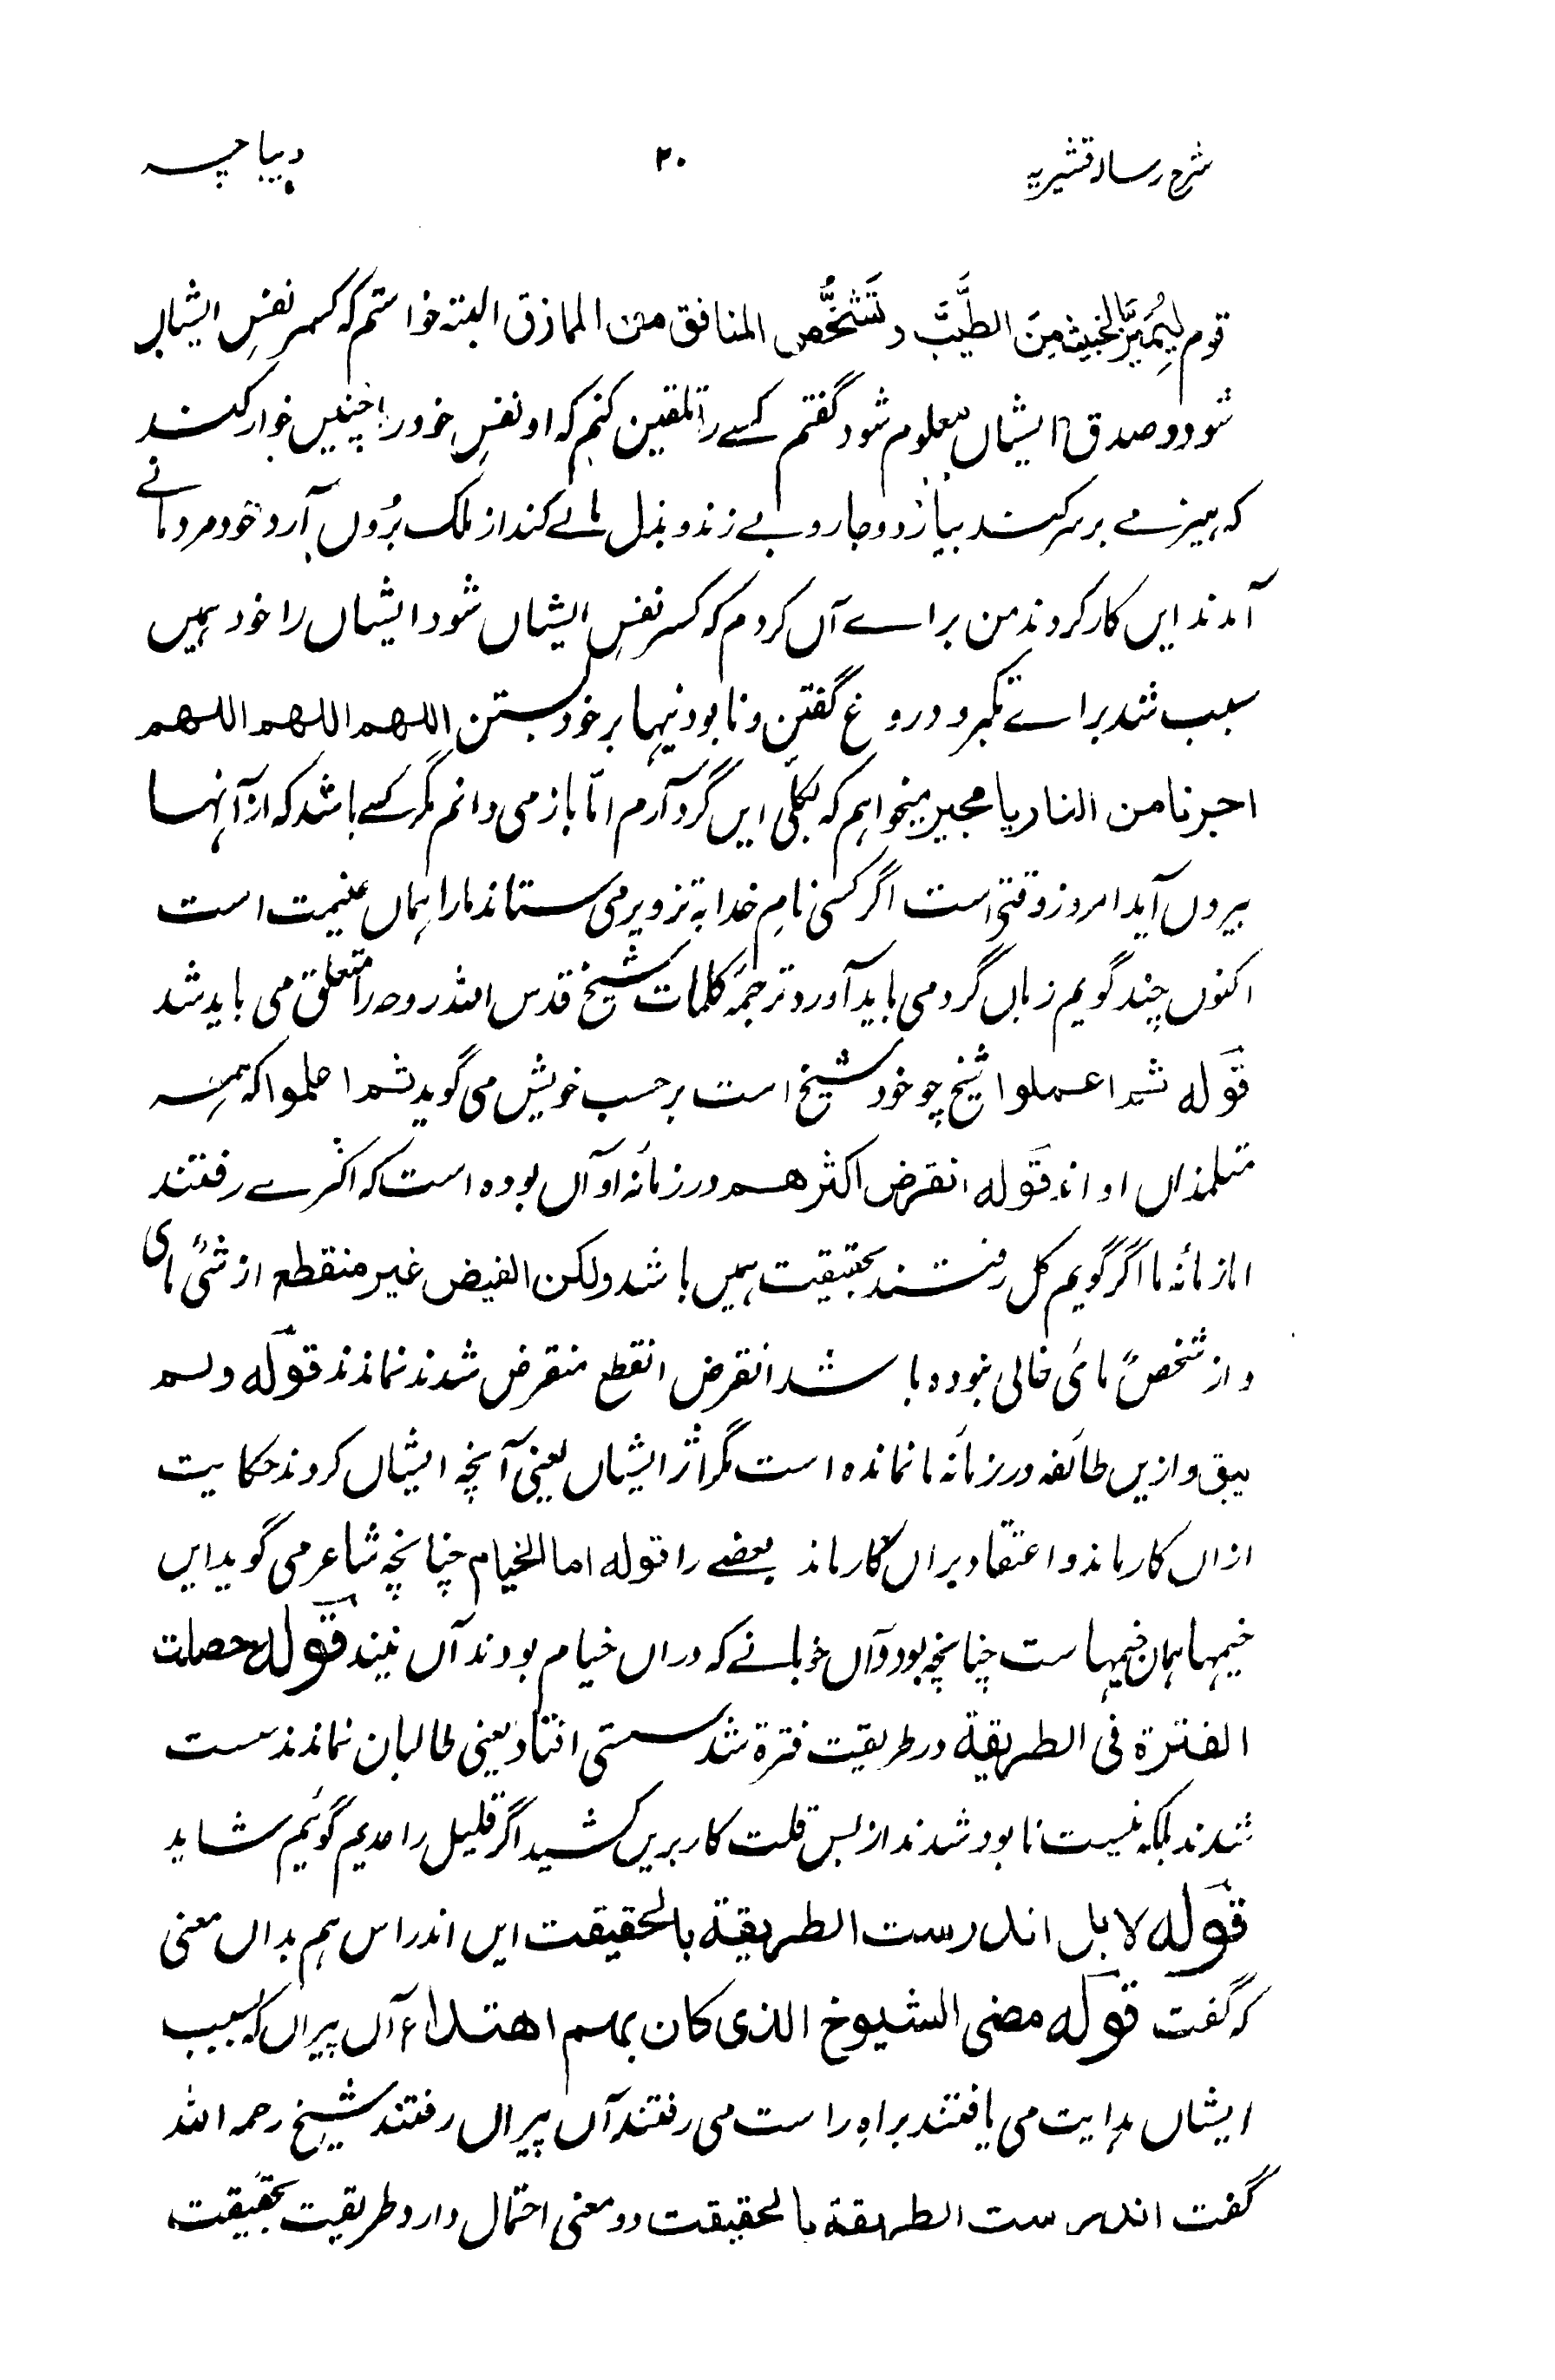 شرح رسالہ قشیریہ ۲۰ دیباچہ
قوم لِیُمَیِّزَ الخبیثَ مِنَ الطَّیِّبَ و تَشَخُّص المنافق من المماذق البتہ خواستم کہ کسر نفسِ ایشاں
شود و صدق ایشاں معلوم شود گفتم کسے را تلقین کنم کہ او نفسِ خود را چنیں خوار کند
کہ ہیزمے بر سر کند بیازد و جاروبے زند و بذل مالے کند از ملک بُروں آرد خود مردمانے
آمدند ایں کار کردند من براے آں کردم کہ کسر نفسِ ایشاں شود ایشاں را خود ہمیں
سبب شد براے تکبر و دروغ گفتن و نابودنیہا بر خود بستن اللہم اللہم اللہم
اجرنا من النار یا مجیر میخواہم کہ بکلی ایں گرد آرم امّا باز می دانم مگر کسے باشد کہ از آنہا
بیروں آید امروز وقتی است اگر کسی نامِ خدا بہ تزویر می ستاند مارا ہماں غنیمت است
اکنوں چند گویم زباں گرد می باید آورد ترجمۂ کلمات شیخ قدس اللہ روحہ را متعلق می باید شد
قولہ ثم اعملوا شیخ چو خود شیخ است بر حسب خویش می گوید ثم اعلموا کہ ہمہ
متلمذاں او اند قولہ انقرض اکثرھم در زمانۂ او آں بودہ است کہ اکثرے رفتند
اما زمانۂ ما اگر گویم کل رفتند بحقیقت ہمیں باشد ولکن الفیض غیر منقطع از شیًٔ مای
و از شخصً مائ خالی نبودہ باشد انقرض انقطع منقرض شدند نماندند قولہ ولم
یبق و ازیں طائفہ در زمانہ ما نماندہ است مگر اثر ایشاں یعنی آنچہ ایشاں کردند حکایت
ازاں کار ماند و اعتقاد براں کار ماند بعضے را قولہ اما الخیام چنانچہ شاعر می گوید ایں
خیمہا ہمان خیمہاست چنانچہ بود و آں خوبانے کہ دراں خیام بودند آں نیند قولہ حصلت
الفترة فی الطریقة در طریقت فترة شد سستی افتاد یعنی طالبان نماندند سست
شدند بلکہ نیست نابود شدند از بس قلت کار بریں کشید اگر قلیل را عدیم گوئیم شاید
قولہ لا بل اندرست الطریقة بالحقیقت ایں اندراس ہم بداں معنی
کہ گفت قولہ مضی الشیوخ الذی کان بہم اھتداء آں پیراں کہ بسبب
ایشاں ہدایت می یافتند براہِ راست می رفتند آں پیراں رفتند شیخ رحمہ اللہ
گفت اندرست الطریقة بالحقیقت دو معنی احتمال دارد طریقت بحقیقت